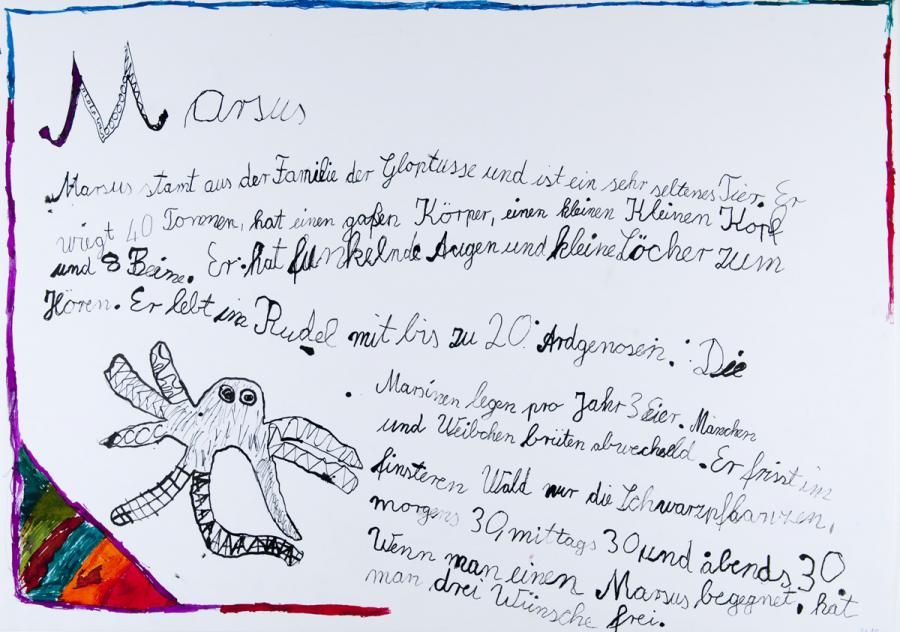 Marsus
Marsus stamt aus der Familie der Gloptusse und ist ein sehr seltenes Tier. Er
wiegt 40 Tonnen, hat einen goßen Körper, einen kleinen Kleinen Kopf
und 8 Beine. Er hat funkelnde Augen und kleine Löcher zum
Hören. Er lebt im Rudel mit bis zu 20 Ardgenosen. Die
Marsinen legen pro Jahr 3 Eier. Mänschen
und Weibchen brüten abwechselld. Er frisst im
finsteren Wald nur die Schwarzpflanzen,
morgens 30, mittags 30 und abends 30
Wenn man einen Marsus begegnet, hat
man drei Wünsche frei.